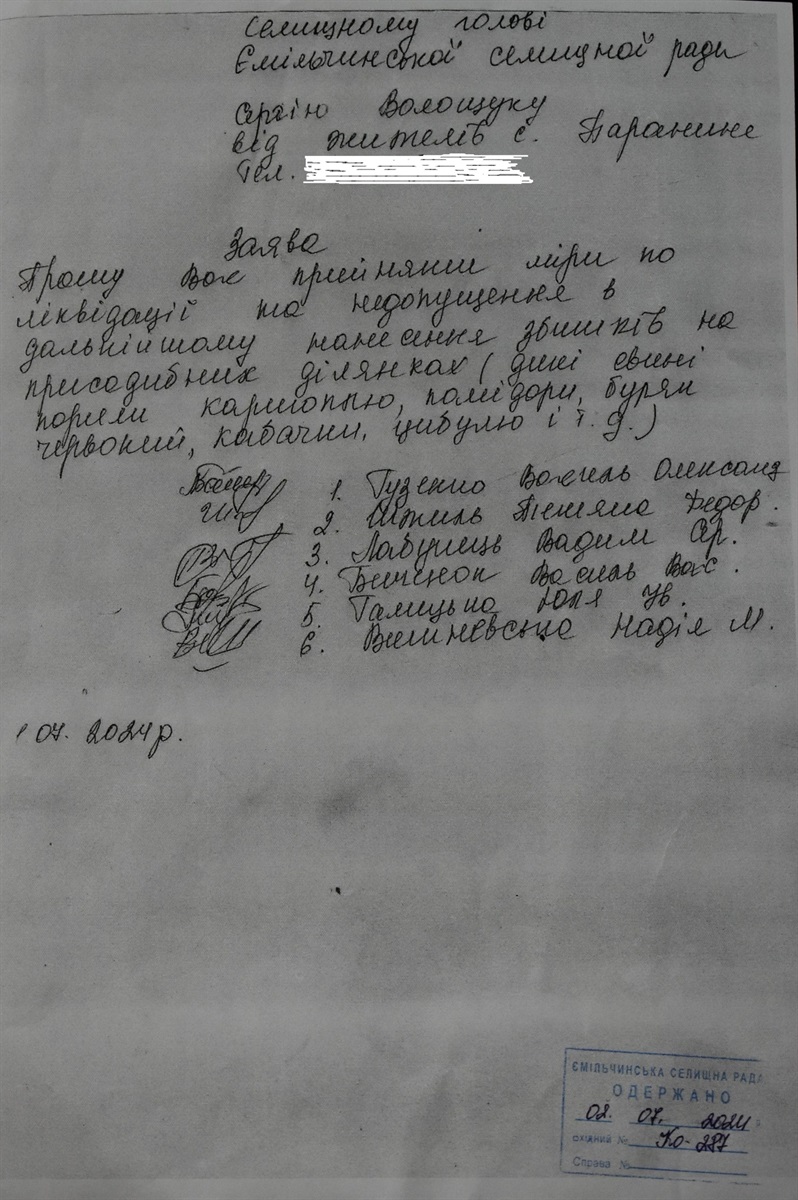 Селищному голові
Ємільчинської селищної ради
Сергію Волощуку
від жителів с. Паранине
Тел.
Заява
Прошу Вас прийняти міри по
ліквідації та недопущення в
дальнійшому нанесення збитків на
присадибних ділянках (дикі свині
порили картоплю, помідори, буряк
червоний, кабачки, цибулю і т. д.)
1. Гузенко Василь Олександ
2. Шкиль Тетяна Федор.
3. Лабунець Вадим Ср.
4. Биченок Василь Вас.
5. Галицька Юлія Ів.
6. Вишневська Надія М.
07. 2024р.
ЄМІЛЬЧИНСЬКА СЕЛИЩНА РАДА
ОДЕРЖАНО
02. 07. 2024 р
Вхідний № Ко-287
Справа №